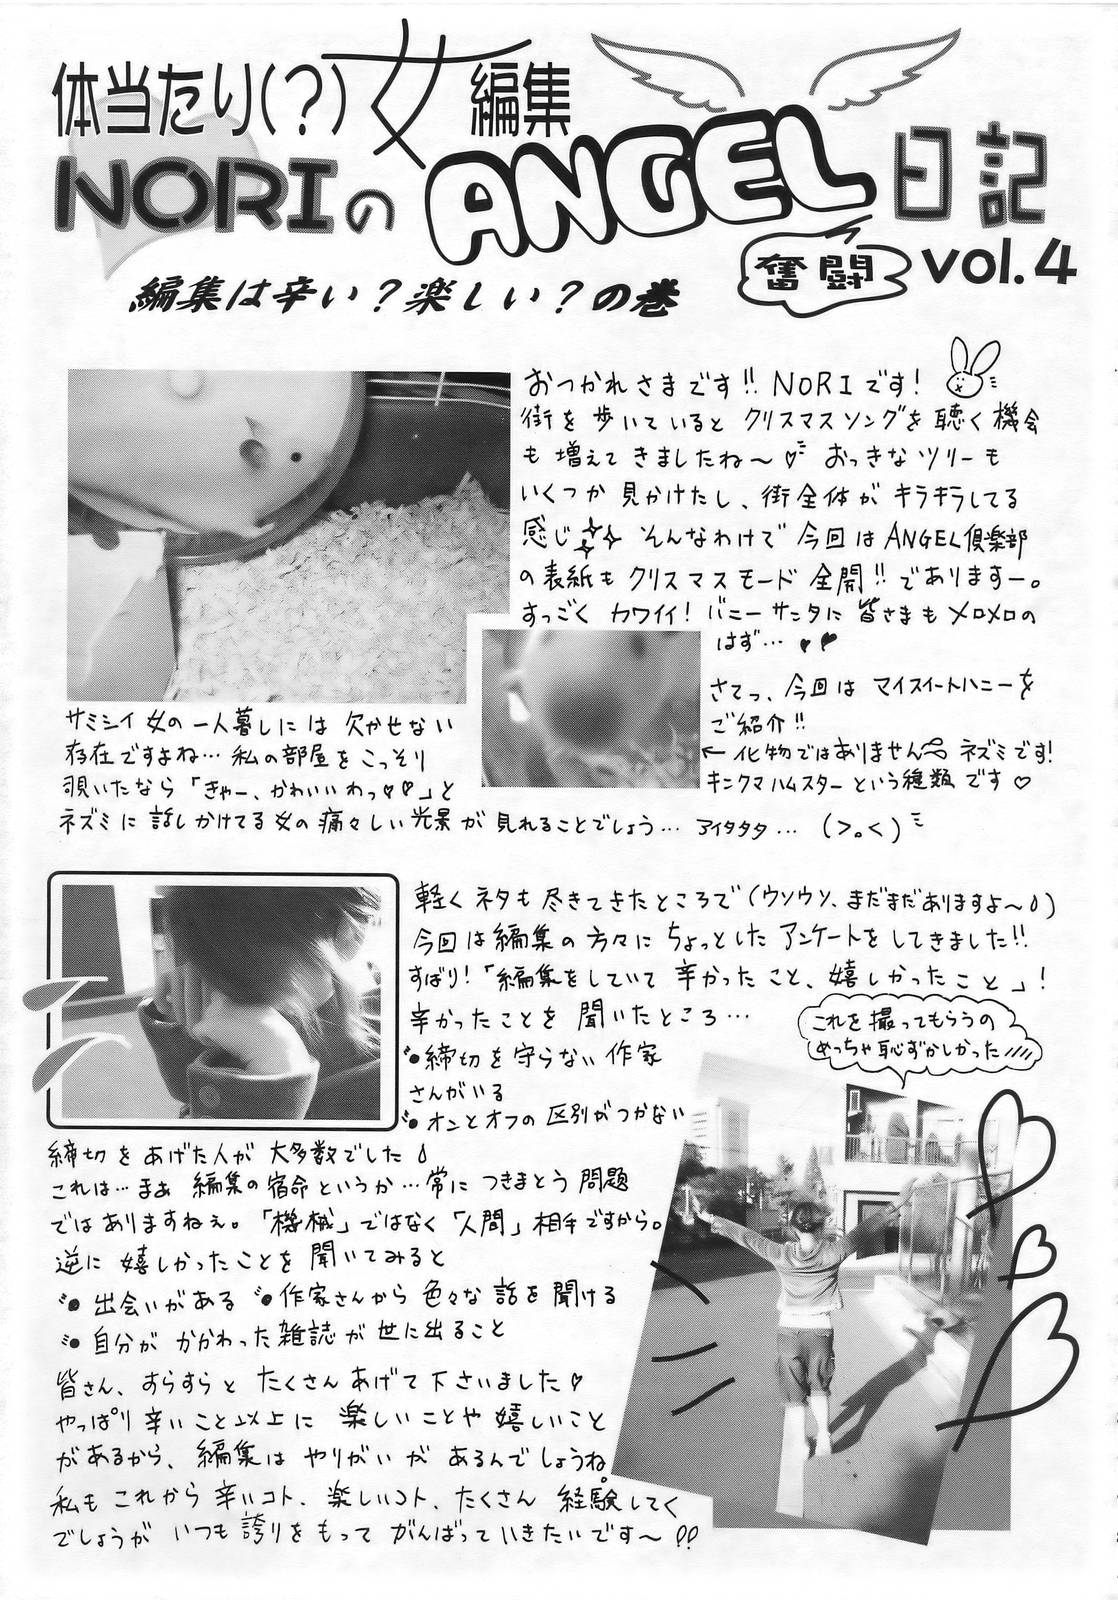 体当たり(?)女編集
NORIのANGEL日記
奮闘 vol.4
編集は辛い?楽しい?の巻
おつかれさまです!! NORIです!
街を歩いていると クリスマスソングを聴く機会
も増えてきましたね〜♡ おっきなツリーも
いくつか見かけたし、街全体がキラキラしてる
感じ そんなわけで今回はANGEL倶楽部
の表紙もクリスマスモード全開!!でありますー。
すっごくカワイイ!バニーサンタに皆さまもメロメロの
はず…♥♥
さてっ、今回はマイスイートハニーを
ご紹介!!
←化物ではありません ネズミです!
キンクマハムスターという種類です♡
サミシイ女の一人暮しには欠かせない
存在ですよね… 私の部屋をこっそり
覗いたなら「きゃー、かわいいわっ♥♥」と
ネズミに話しかけてる女の痛々しい光景が見れることでしょう… アイタタタ… (>。<)
軽くネタも尽きてきたところで(ウソウソ、まだまだありますよ〜)
今回は編集の方々にちょっとしたアンケートをしてきました!!
ずばり!「編集をしていて辛かったこと、嬉しかったこと」!
辛かったことを聞いたところ…
●締切を守らない作家
さんがいる
●オンとオフの区別がつかない
これを撮ってもらうの
めっちゃ恥ずかしかった
締切をあげた人が大多数でした
これは…まぁ 編集の宿命というか…常につきまとう問題
ではありますねぇ。「機械」ではなく「人間」相手ですから。
逆に嬉しかったことを聞いてみると
●出会いがある ●作家さんから色々な話を聞ける
●自分がかかわった雑誌が世に出ること
皆さん、すらすらとたくさんあげて下さいました♡
やっぱり辛いこと以上に楽しいことや嬉しいこと
があるから、編集はやりがいがあるんでしょうね。
私もこれから辛いコト、楽しいコト、たくさん経験してく
でしょうがいつも誇りをもってがんばっていきたいです〜!!